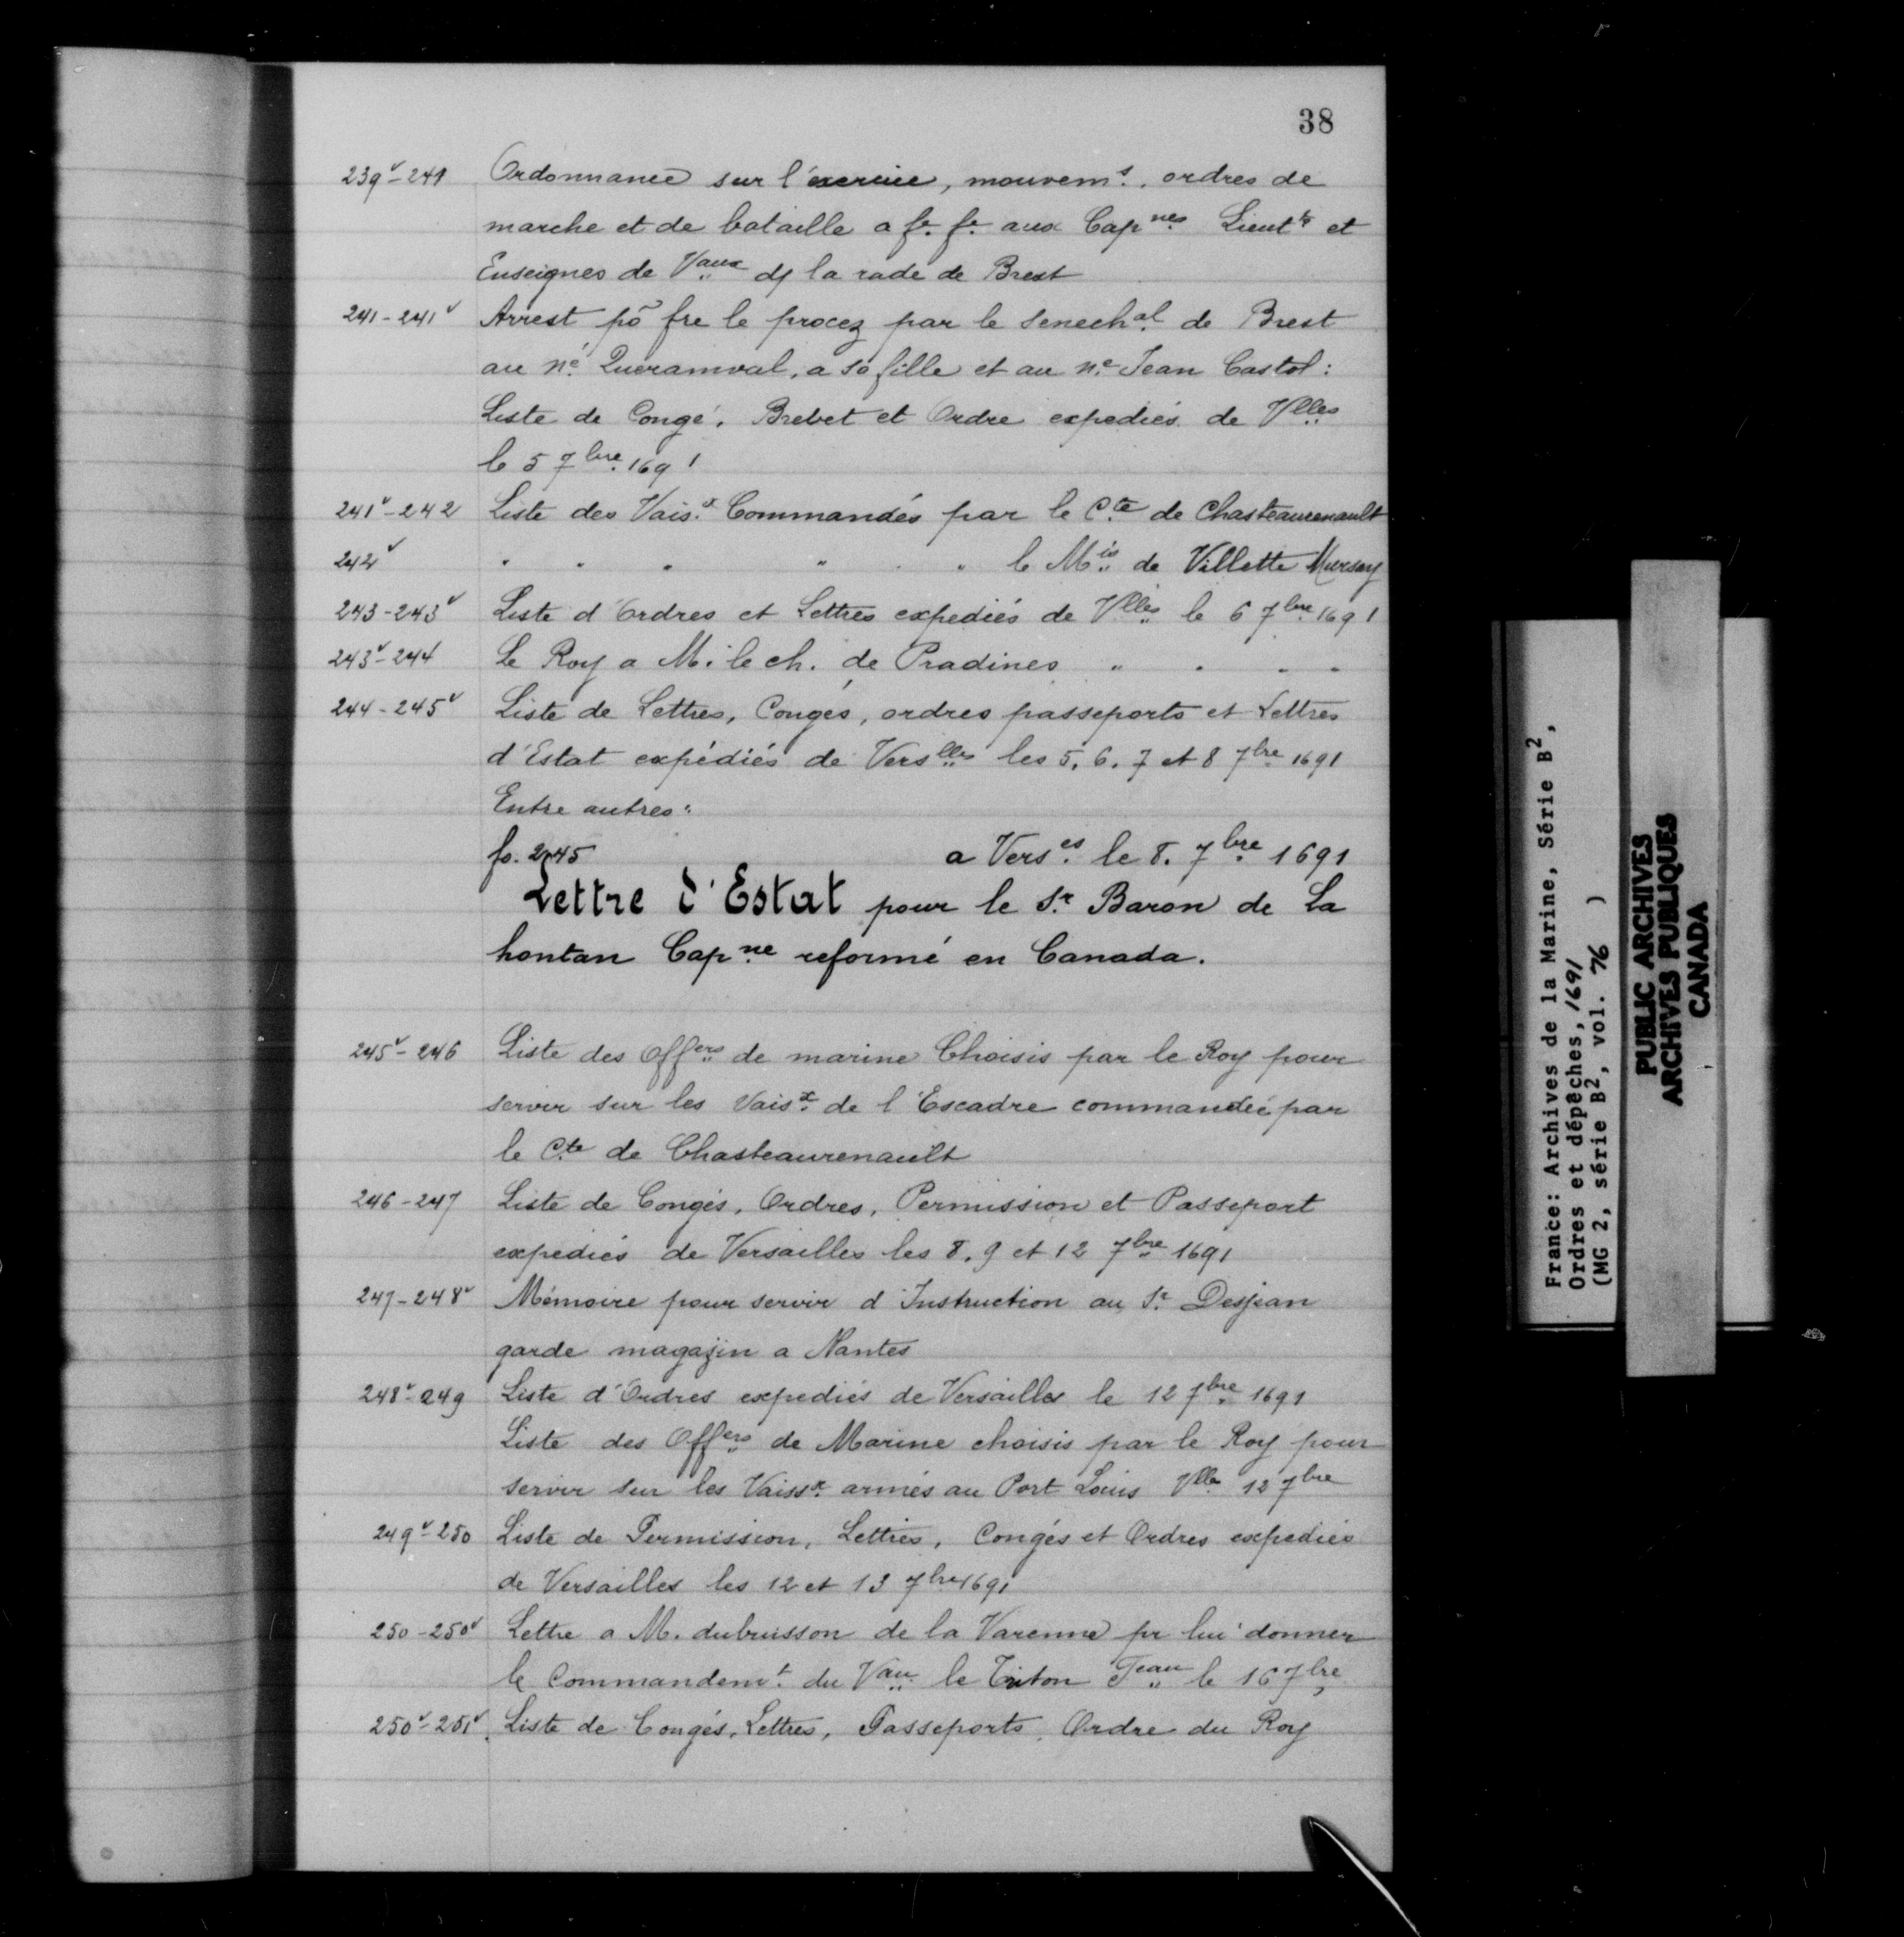 38
239v-241 Ordonnance sur l'exercice, mouvemts. ordres de
marche et de bataille a fe. fe. aux Capnes Lieuts et
Enseignes de Vaux ds la rade de Brest
241-241v Arrest pō fre le procez par le senechal de Brest
au né Queramval, a sa fille et au né Jean Castol:
Liste de Congé, Brebet et Ordre expediés de Vlles
le 5 7bre 1691
241v-242 Liste des Vaisx Commandés par le Cte de Chasteaurenault
242v " " " " " le Mis de Villette Mursay
243-243v Liste d'Ordres et Lettres expediés de Vlles le 6 7bre 1691
243v-244 Le Roy a M. le ch. de Pradines " " " "
244-245v Liste de Lettres, Congés, ordres passeports et Lettres
d'Estat expédiés de Verslles les 5, 6, 7 et 8 7bre 1691
Entre autres:
fo. 245 a Verses le 8. 7bre 1691
Lettre d'Estat pour le Sr. Baron de La
hontan Capne reformé en Canada.
245v-246 Liste des Offers de marine Choisis par le Roy pour
servir sur les Vaisx de l'Escadre commandée par
le Cte de Chasteaurenault
246-247 Liste de Congés, Ordres, Permission et Passeport
expediés de Versailles les 8, 9 et 12 7bre 1691
247-248v Mémoire pour servir d'Instruction au Sr. Desjean
garde magazin a Nantes
248v-249 Liste d'Ordres expediés de Versailles le 12 7bre 1691
Liste des Offers de Marine choisis par le Roy pour
servir sur les Vaissx armés au Port Louis Vlles 12 7bre
249v-250 Liste de Permission, Lettres, Congés et Ordres expediés
de Versailles les 12 et 13 7bre 1691
250-250v Lettre a M. dubuisson de la Varenne pr lui donner
le Commandemt. du Vau le Triton Feau le 16 7bre
250v-251v. Liste de Congés, Lettres, Passeports, Ordre du Roy
France: Archives de la Marine, Série B2,
Ordres et dépêches, 1691
(MG 2, série B2, vol. 76 )
PUBLIC ARCHIVES
ARCHIVES PUBLIQUES
CANADA